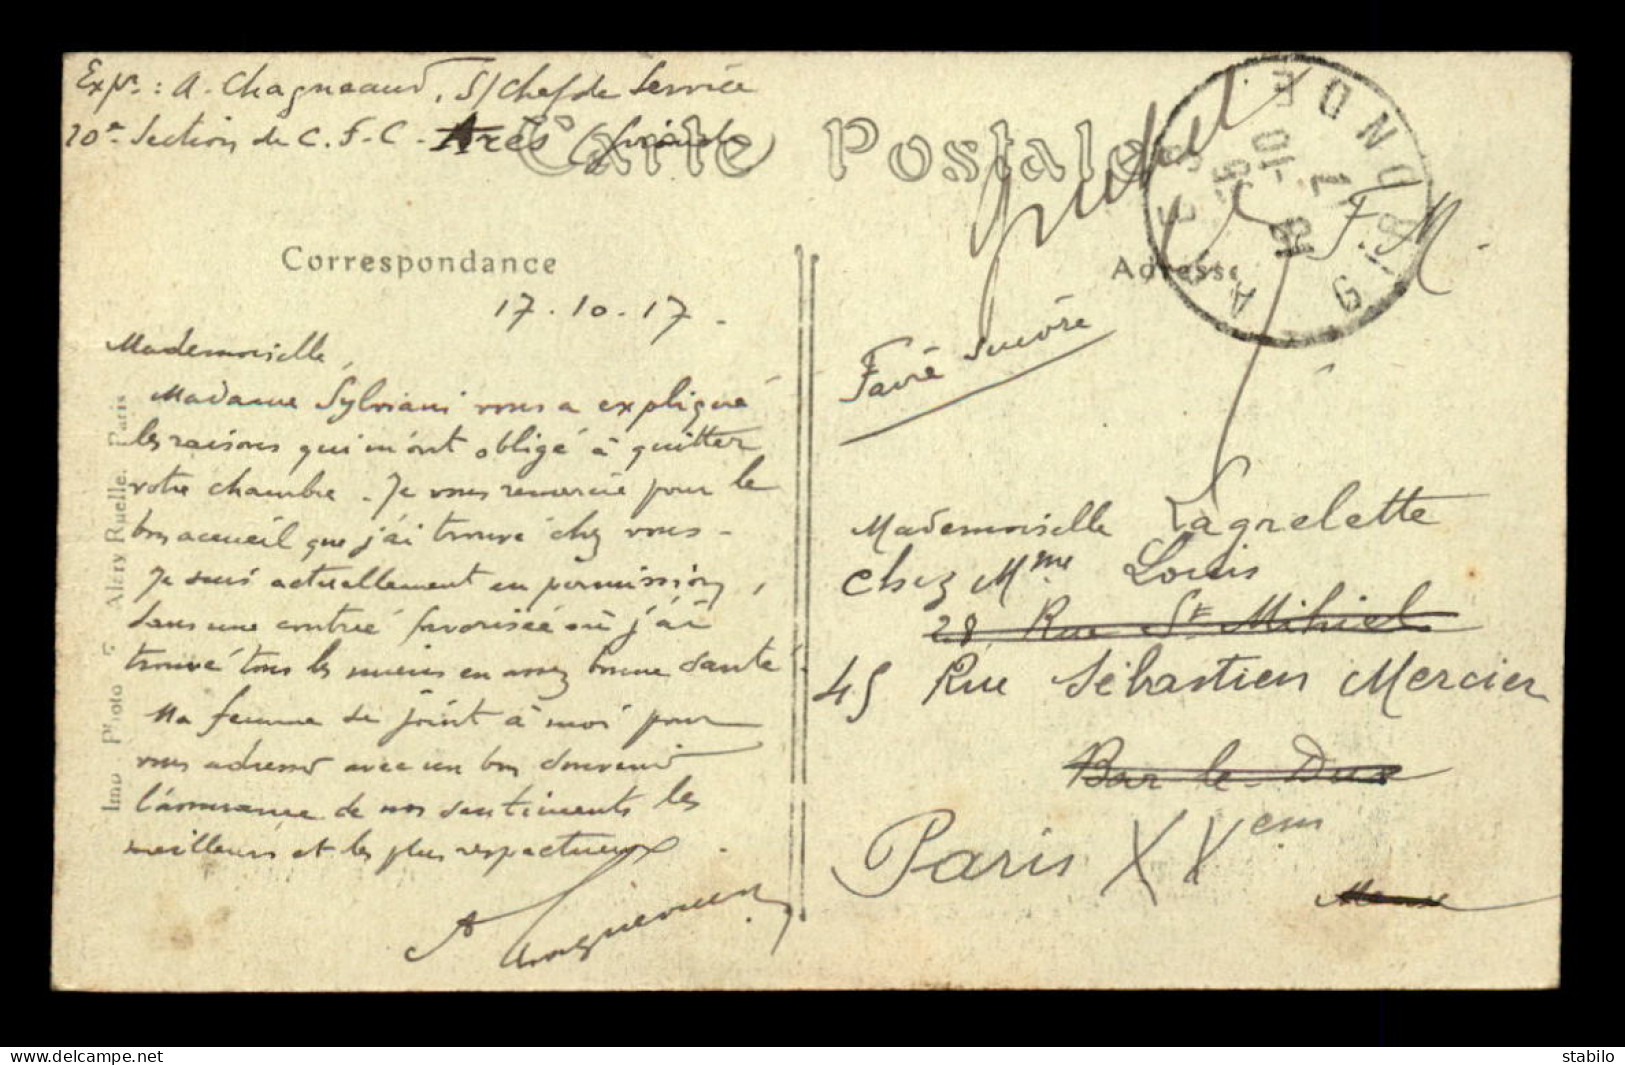 Expr. : A. Chagneaud, S/Chef de Service
10e Section de C. F. C. - Arès Gironde
Carte Postale
Correspondance
17.10.17.
Mademoiselle,
Madame Sylviani vous a expliqué
les raisons qui m'ont obligé à quitter
votre chambre. Je vous remercie pour le
bon accueil que j'ai trouvé chez vous.
Je suis actuellement en permission,
dans une contrée favorisée où j'ai
trouvé tous les miens en assez bonne santé.
Ma femme se joint à moi pour
vous adresser avec un bon souvenir
l'assurance de nos sentiments les
meilleurs et les plus respectueux.
A Chagneaud
Imp. Photo Aléry Ruelle. Paris
Adresse
F. M.
ARES
GIRONDE
Faire suivre
Mademoiselle Lagrelette
chez Mme Louis
28 Rue St Mihiel
45 Rue Sébastien Mercier
Bar-le-Duc
Paris XVem
Meuse
www.delcampe.net
stabilo